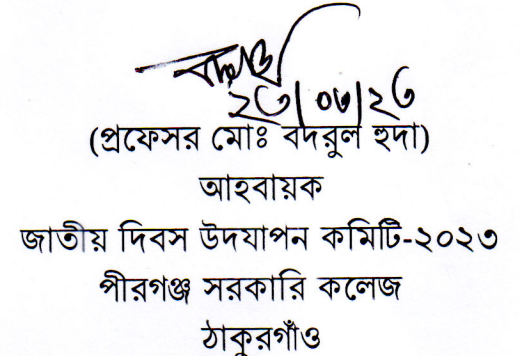 ২৩|০৩|২৩
(প্রফেসর মোঃ বদরুল হুদা)
আহবায়ক
জাতীয় দিবস উদযাপন কমিটি-২০২৩
পীরগঞ্জ সরকারি কলেজ
ঠাকুরগাঁও